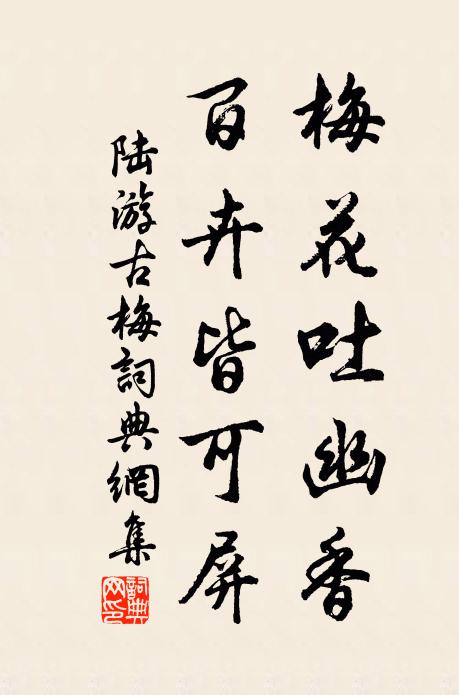 梅花吐幽香
百卉皆可屏
陆游古梅詞典網集
詞典网印